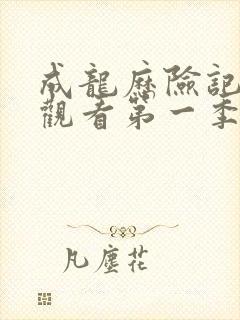 成龍歷險記
觀看第一季
凡塵花